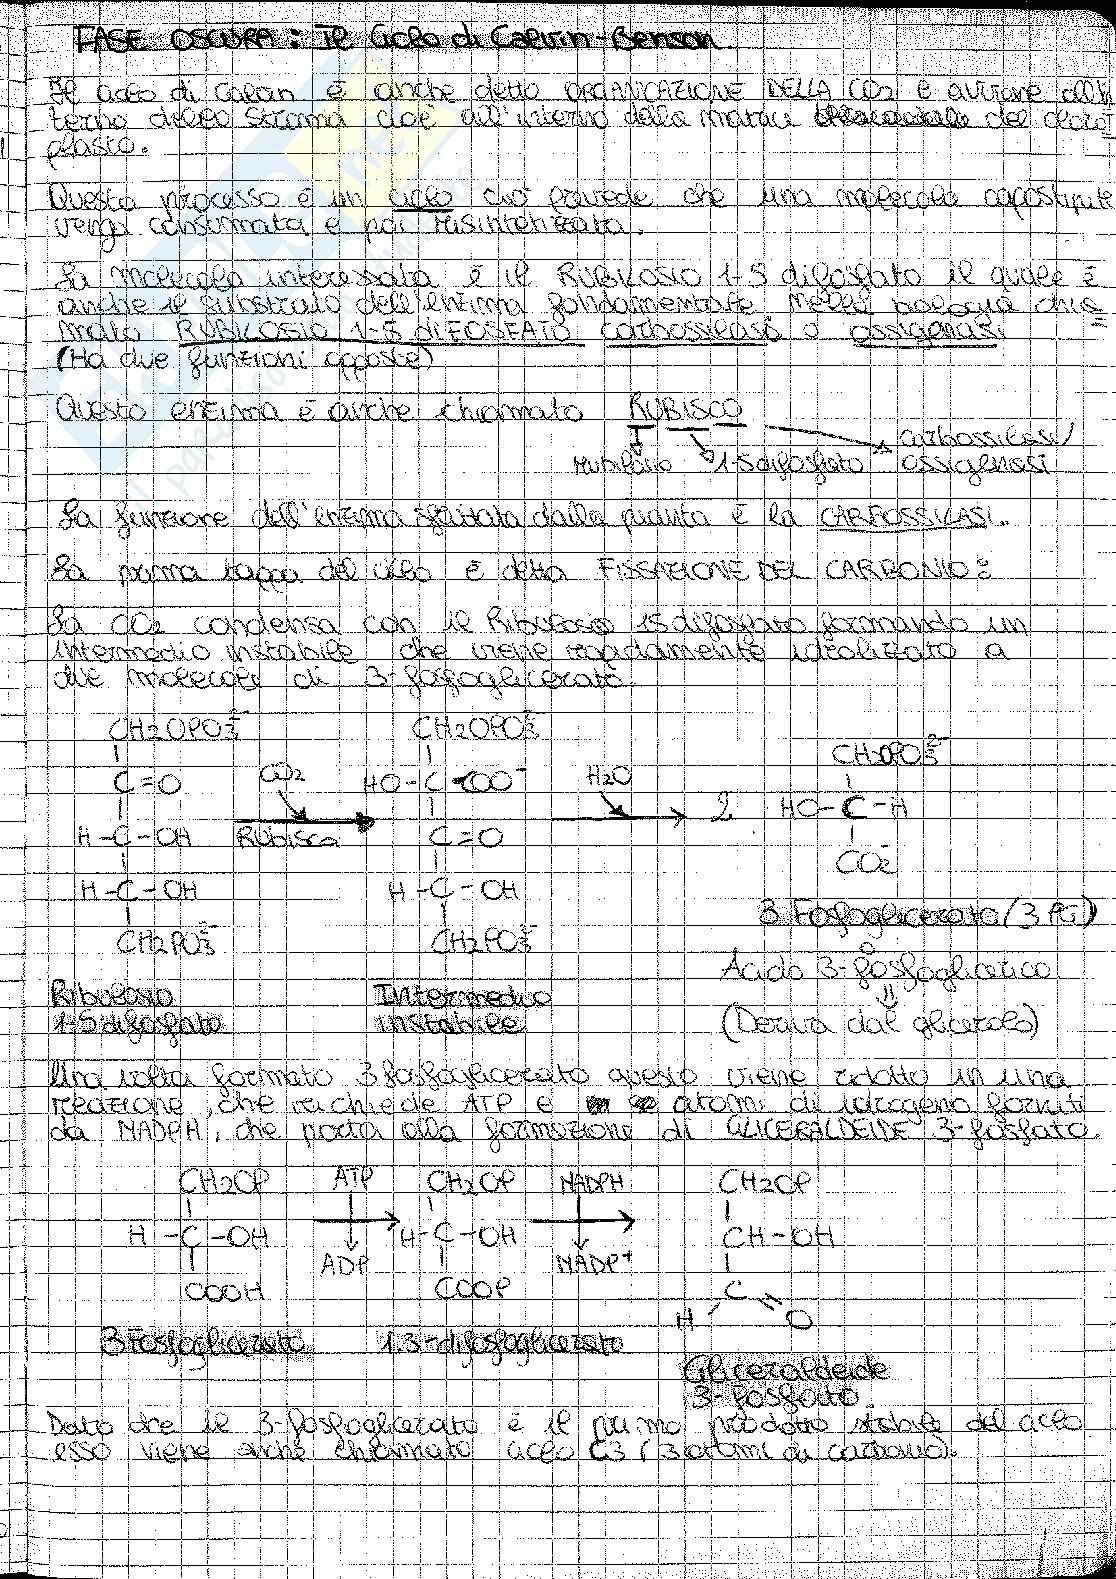 FASE OSCURA: Il Ciclo di Calvin-Benson
Il ciclo di Calvin è anche detto ORGANICAZIONE DELLA CO2 e avviene all'in
terno dello stroma cioè all'interno della matrice del cloro
plasto.
Questo processo è un ciclo ciò prevede che una molecola capostipite
venga consumata e poi risintetizzata.
La molecola interessata è il RUBILOSIO 1-5 difosfato il quale è
anche il substrato dell'enzima fondamentale nella biologia chia
mato RUBILOSIO 1-5 diFOSFATO carbossilasi o ossigenasi
(Ha due funzioni opposte)
Questo enzima è anche chiamato RUBISCO
carbossilasi/
Rubilosio 1-5difosfato ossigenasi
La funzione dell'enzima sfruttata dalla pianta è la CARBOSSILASI.
La prima tappa del ciclo è detta FISSAZIONE DEL CARBONIO:
La CO2 condensa con il Ribulosio 15difosfato formando un
intermedio instabile che viene rapidamente idrolizzato a
due molecole di 3-fosfoglicerato.
CH2OPO3²⁻ CH2OPO3²⁻ CH2OPO3²⁻
C=O CO2 HO-C-COO⁻ H2O HO-C-H
H-C-OH RUBisco C=O 2
H-C-OH H-C-OH CO2⁻
CH2PO3²⁻ CH2PO3²⁻
3 Fosfoglicerato (3PG)
o
Acido 3-fosfoglicerico
Ribulosio Intermedio
1-5difosfato instabile (Deriva dal glicerolo)
Una volta formato 3fosfoglicerato questo viene ridotto in una
reazione, che richiede ATP e atomi di idrogeno forniti
da NADPH, che porta alla formazione di GLICERALDEIDE 3-fosfato.
CH2OP ATP CH2OP NADPH CH2OP
H-C-OH H-C-OH CH-OH
ADP NADP⁺
COOH COOP C
H O
3Fosfoglicerato 1.3-difosfoglicerato
Gliceraldeide
3-fosfato
Dato che il 3-fosfoglicerato è il primo prodotto stabile del ciclo
esso viene anche chiamato ciclo C3 (3 atomi di carbonio).